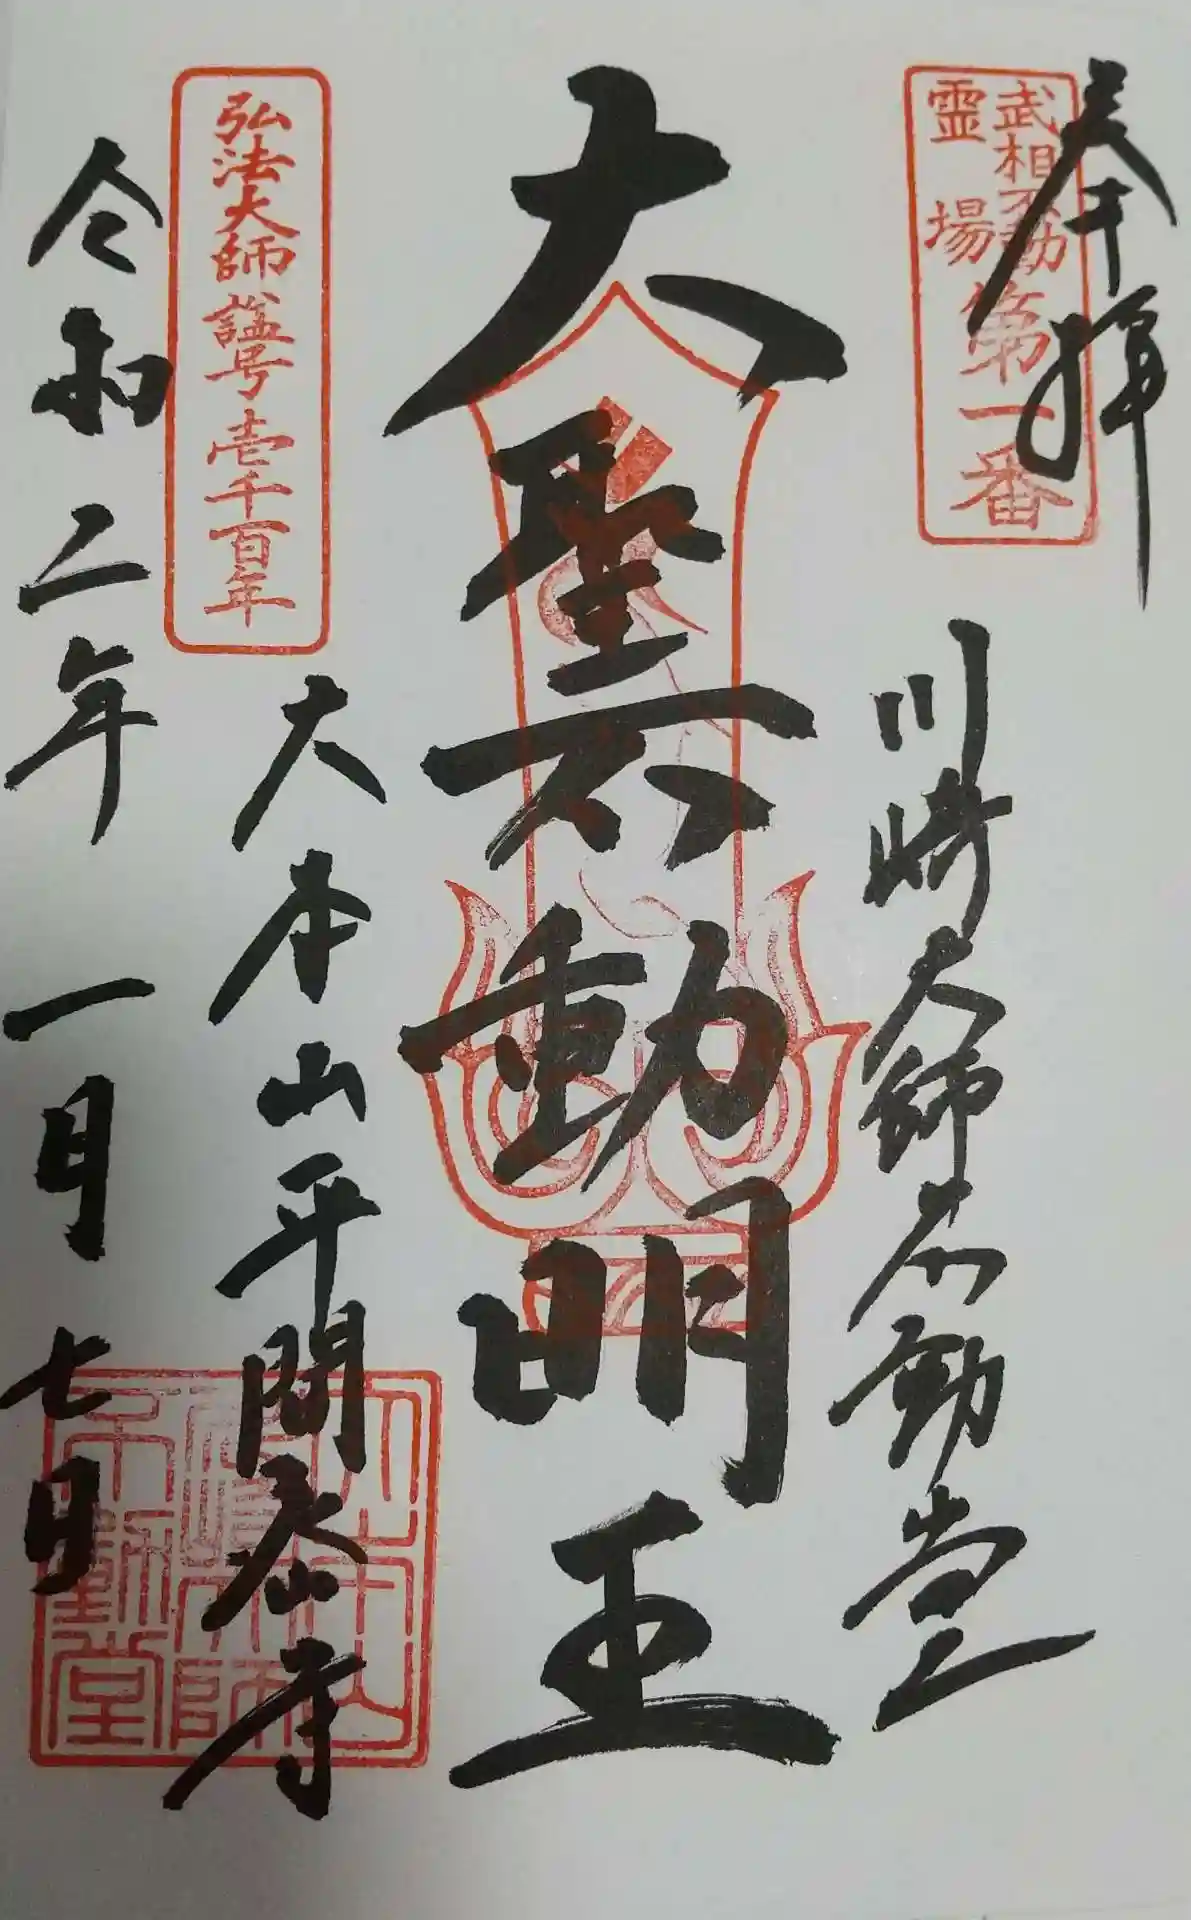 奉拝
武相不動
霊場
第一番
川崎大師不動堂
大聖不動明王
弘法大師諡号壱千百年
大本山平間寺
令和二年一月七日
大本山
川崎大師
不動堂